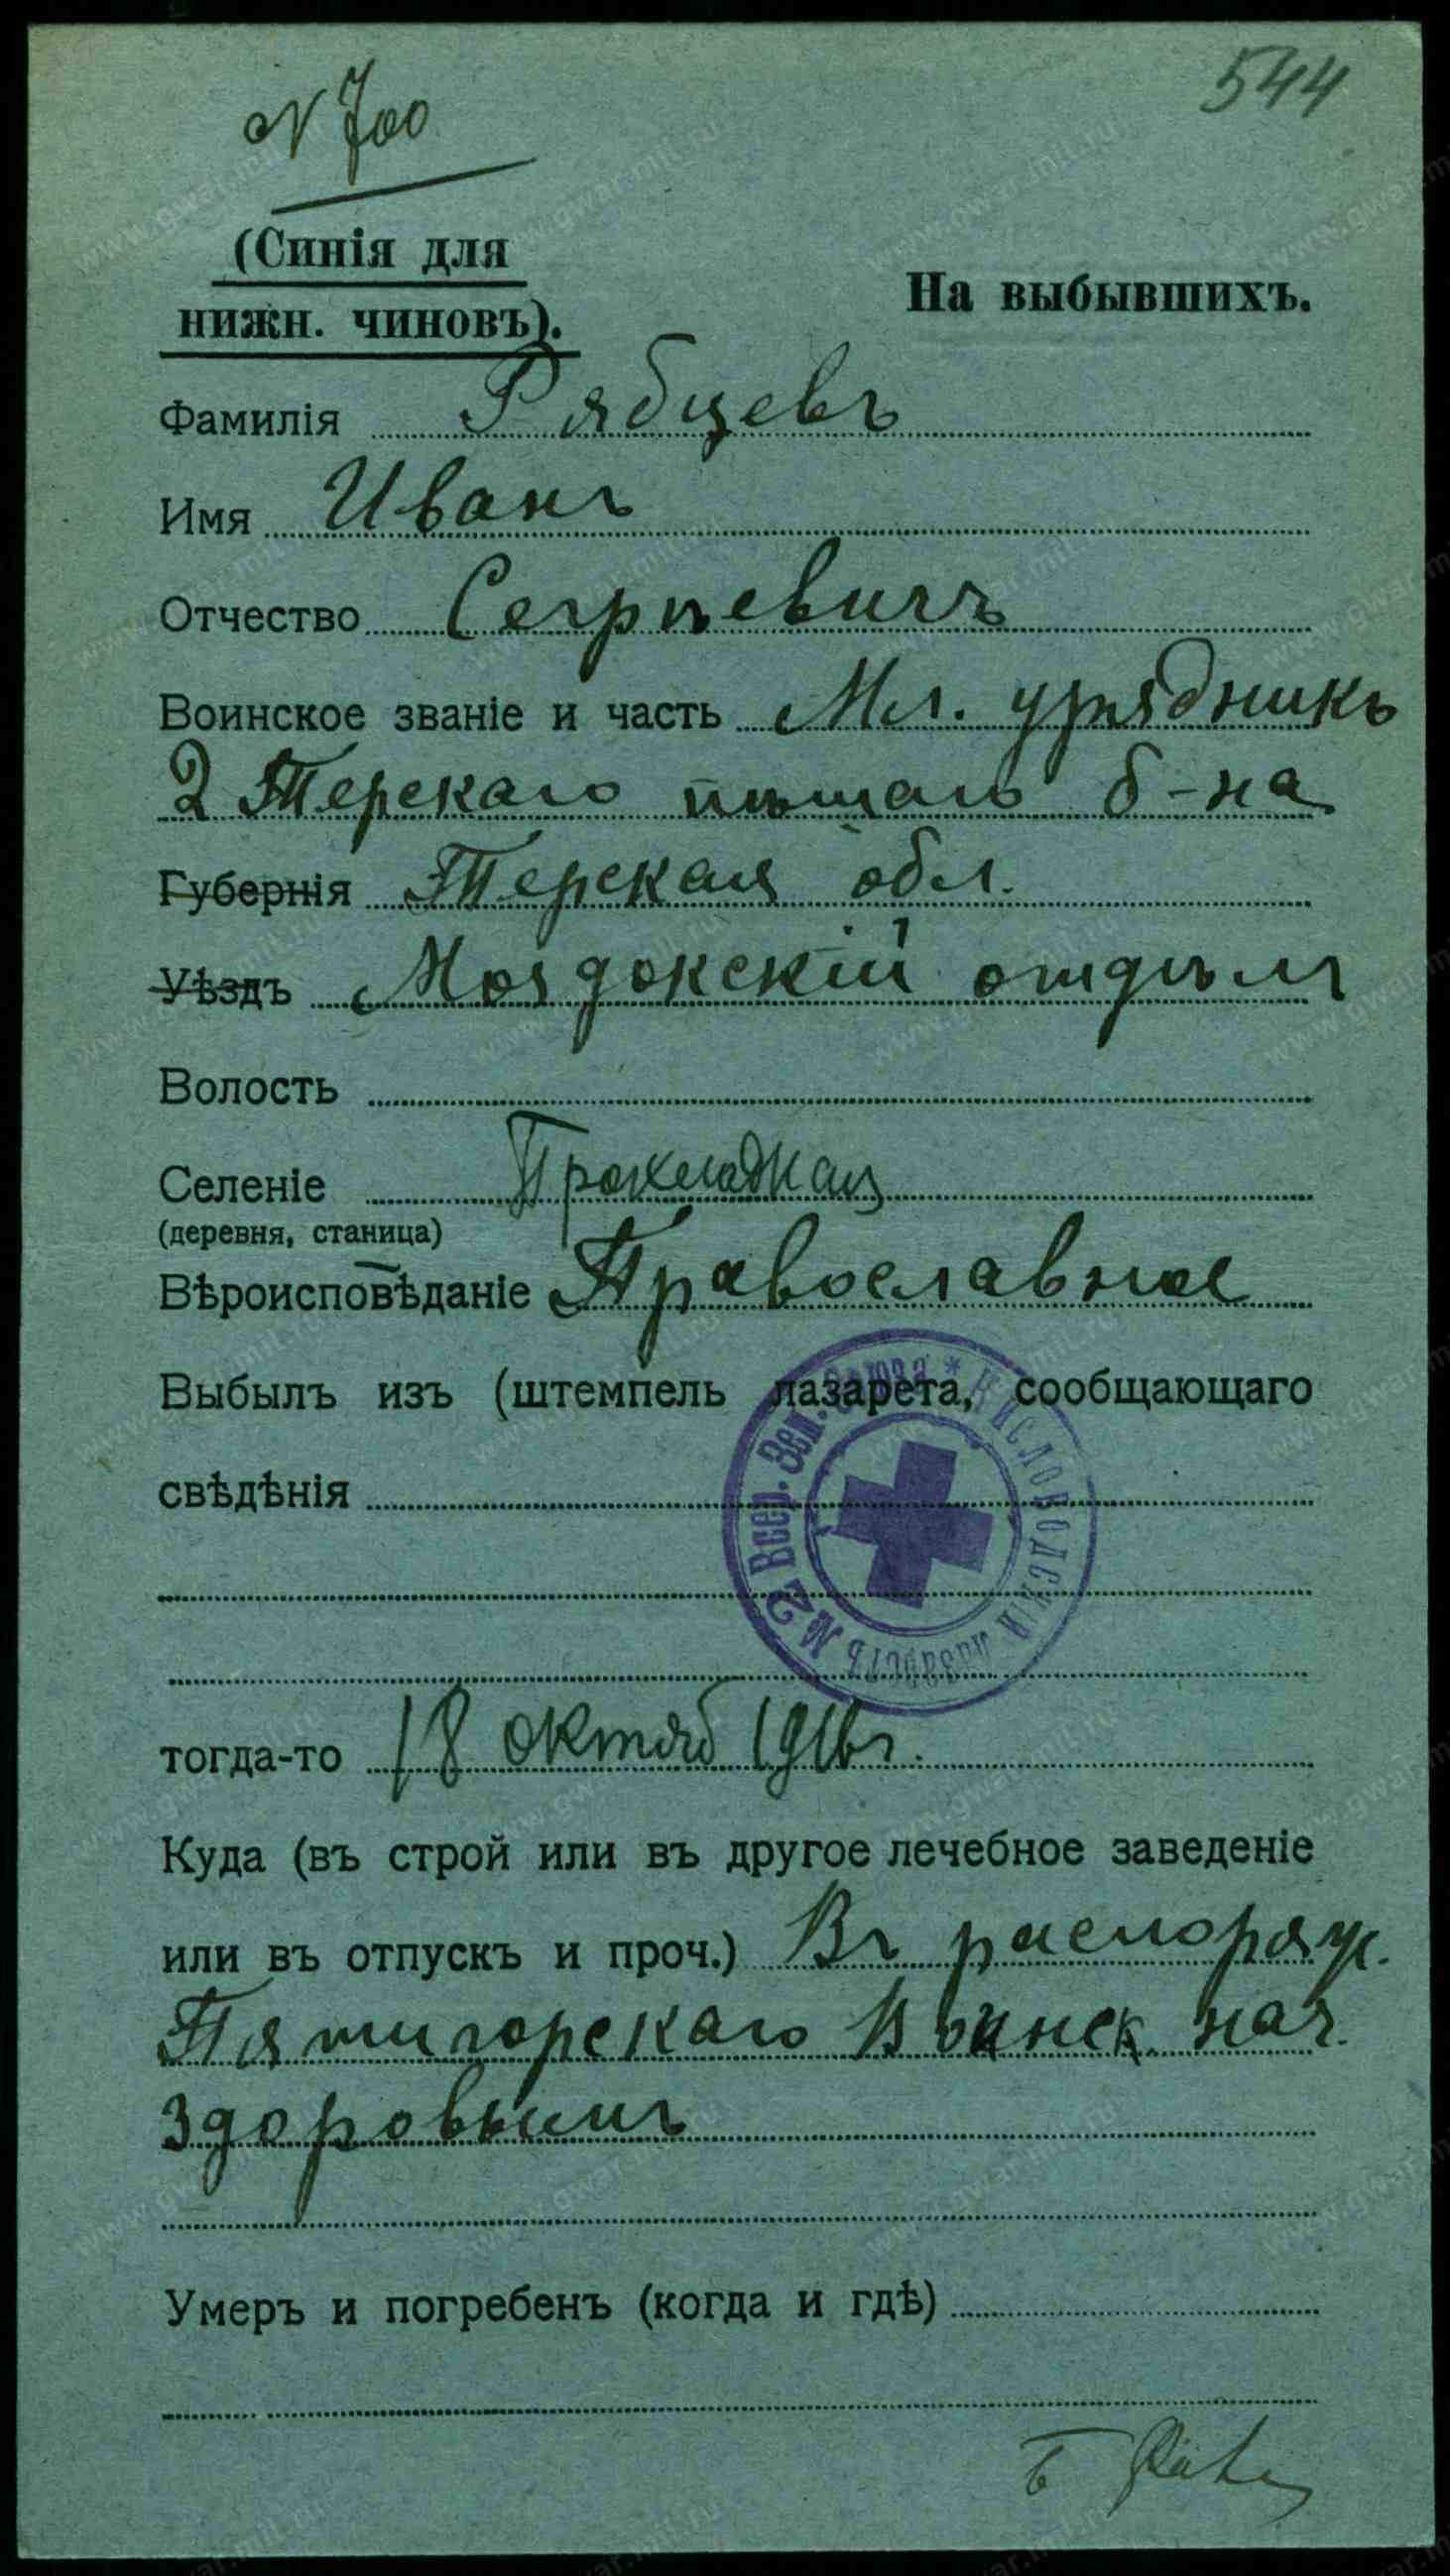 N 700
544
(Синія для
нижн. чиновъ).
На выбывшихъ.
Фамилія Рябцевъ
Имя Иванъ
Отчество Сергѣевичъ
Воинское званіе и часть Мл. урядникъ
2 Терскаго пѣшаго б-на
Губернія Терская обл.
Уѣздъ Моздокскій отдѣлъ
Волость
Селеніе Прохладная
(деревня, станица)
Вѣроисповѣданіе Православное
Выбылъ изъ (штемпель лазарета, сообщающаго
свѣдѣнія
КИСЛОВОДСКІЙ лазаретъ № 2 Всер. Зем. Союза *
тогда-то 18 октяб 1916 г.
Куда (въ строй или въ другое лечебное заведеніе
или въ отпускъ и проч.) Въ распоряж.
Пятигорскаго Воинск. нач.
здоровымъ
Умеръ и погребенъ (когда и гдѣ)
www.gwar.mil.ru